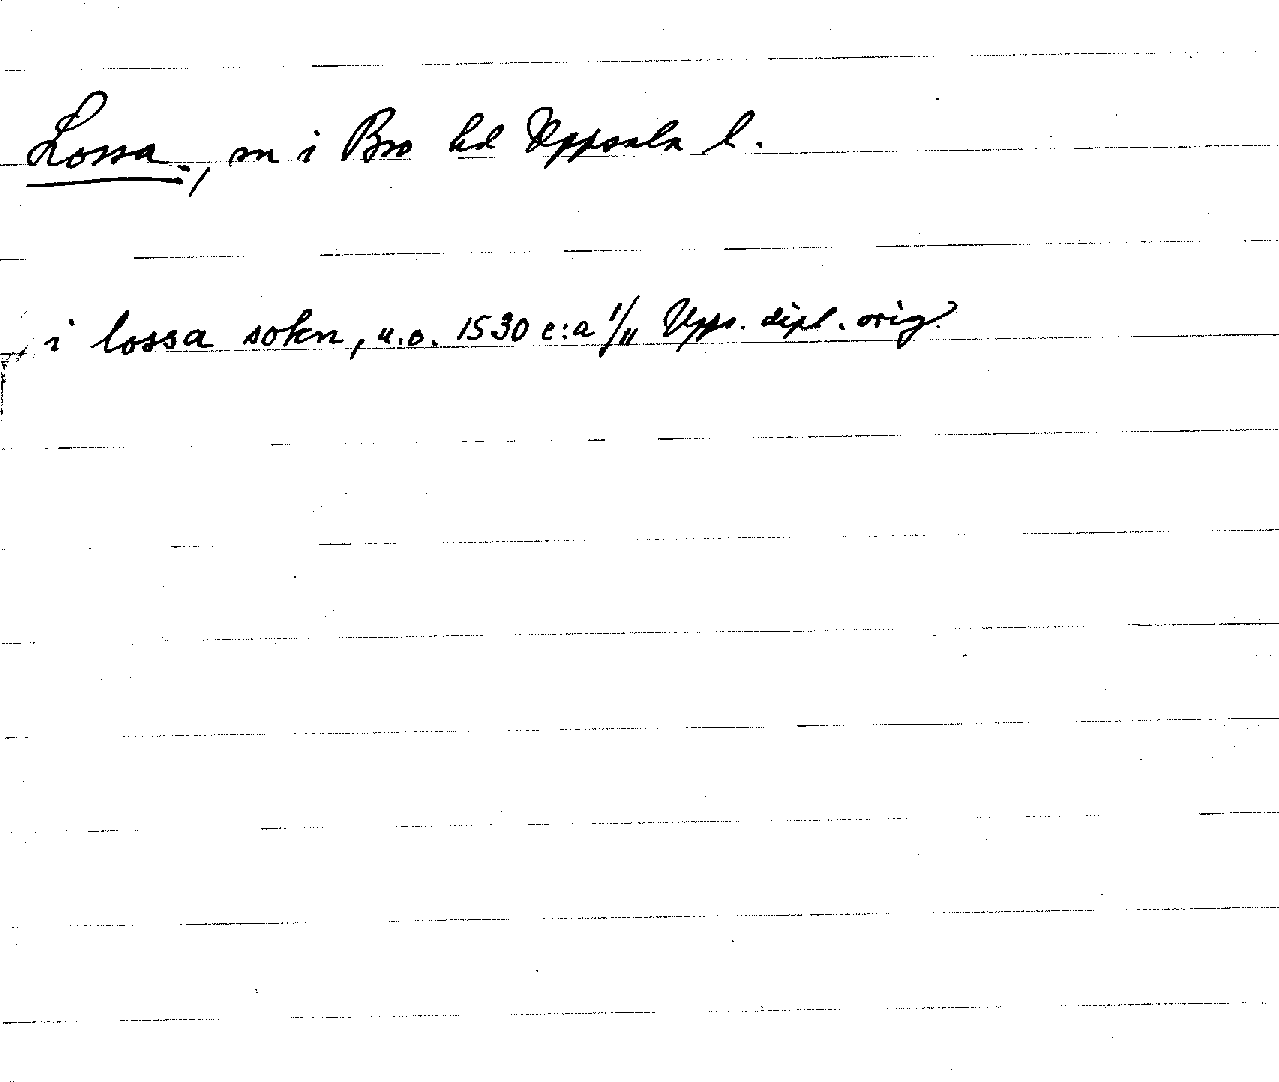 Lossa., sn i Bro hd Uppsala l.
i lossa sokn, u.o. 1530 c:a 1/11 Upps. dipl. orig.